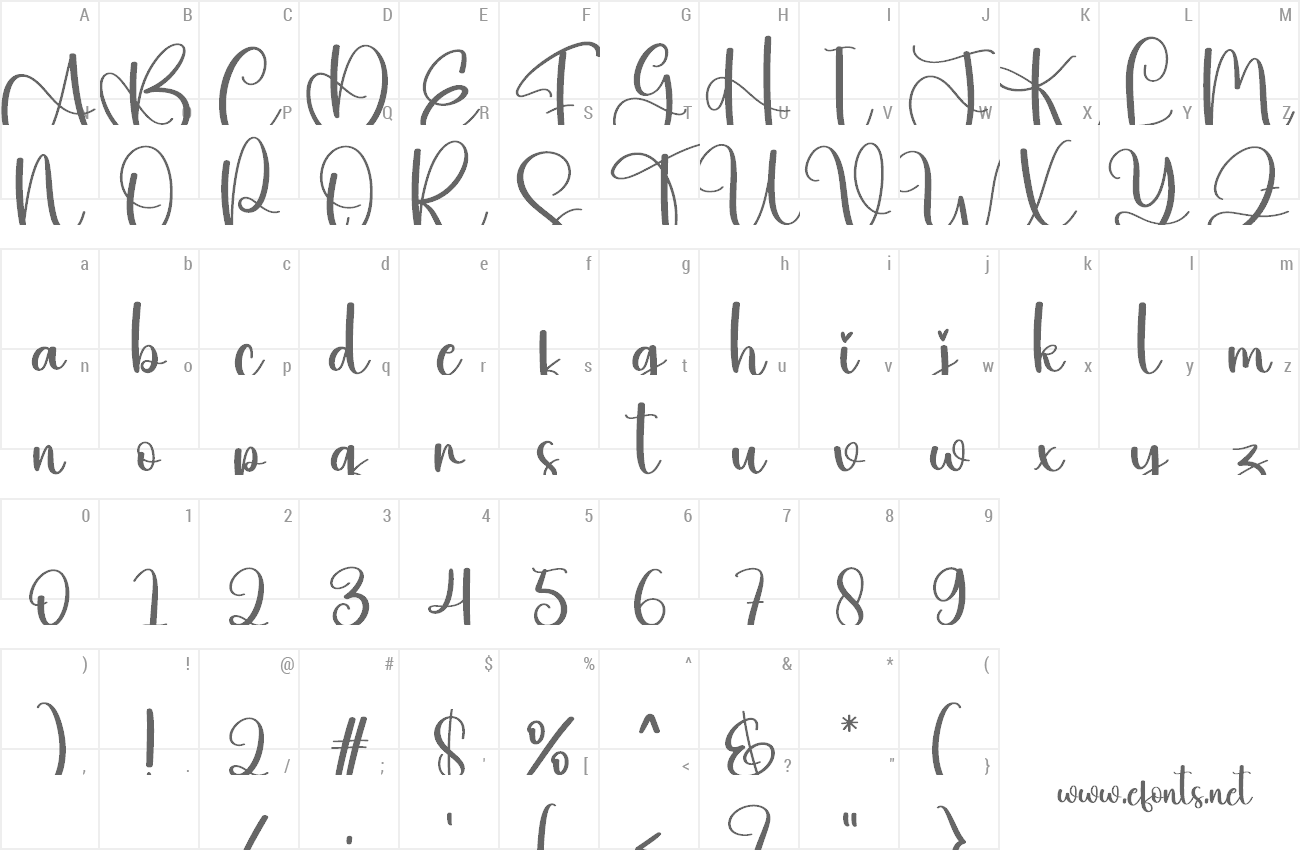 A B C D E F G H I J K L M
A B C D E F G H I J K L M
N O P Q R S T U V W X Y Z
N O P Q R S T U V W X Y Z
a b c d e f g h i j k l m
a b c d e f g h i j k l m
n o p q r s t u v w x y z
n o p q r s t u v w x y z
0 1 2 3 4 5 6 7 8 9
0 1 2 3 4 5 6 7 8 9
) ! @ # $ % ^ & * (
) ! 2 # $ % ^ & * (
, . / ; ' [ < ? " }
/ ; ' [ < ? " }
www.cfonts.net